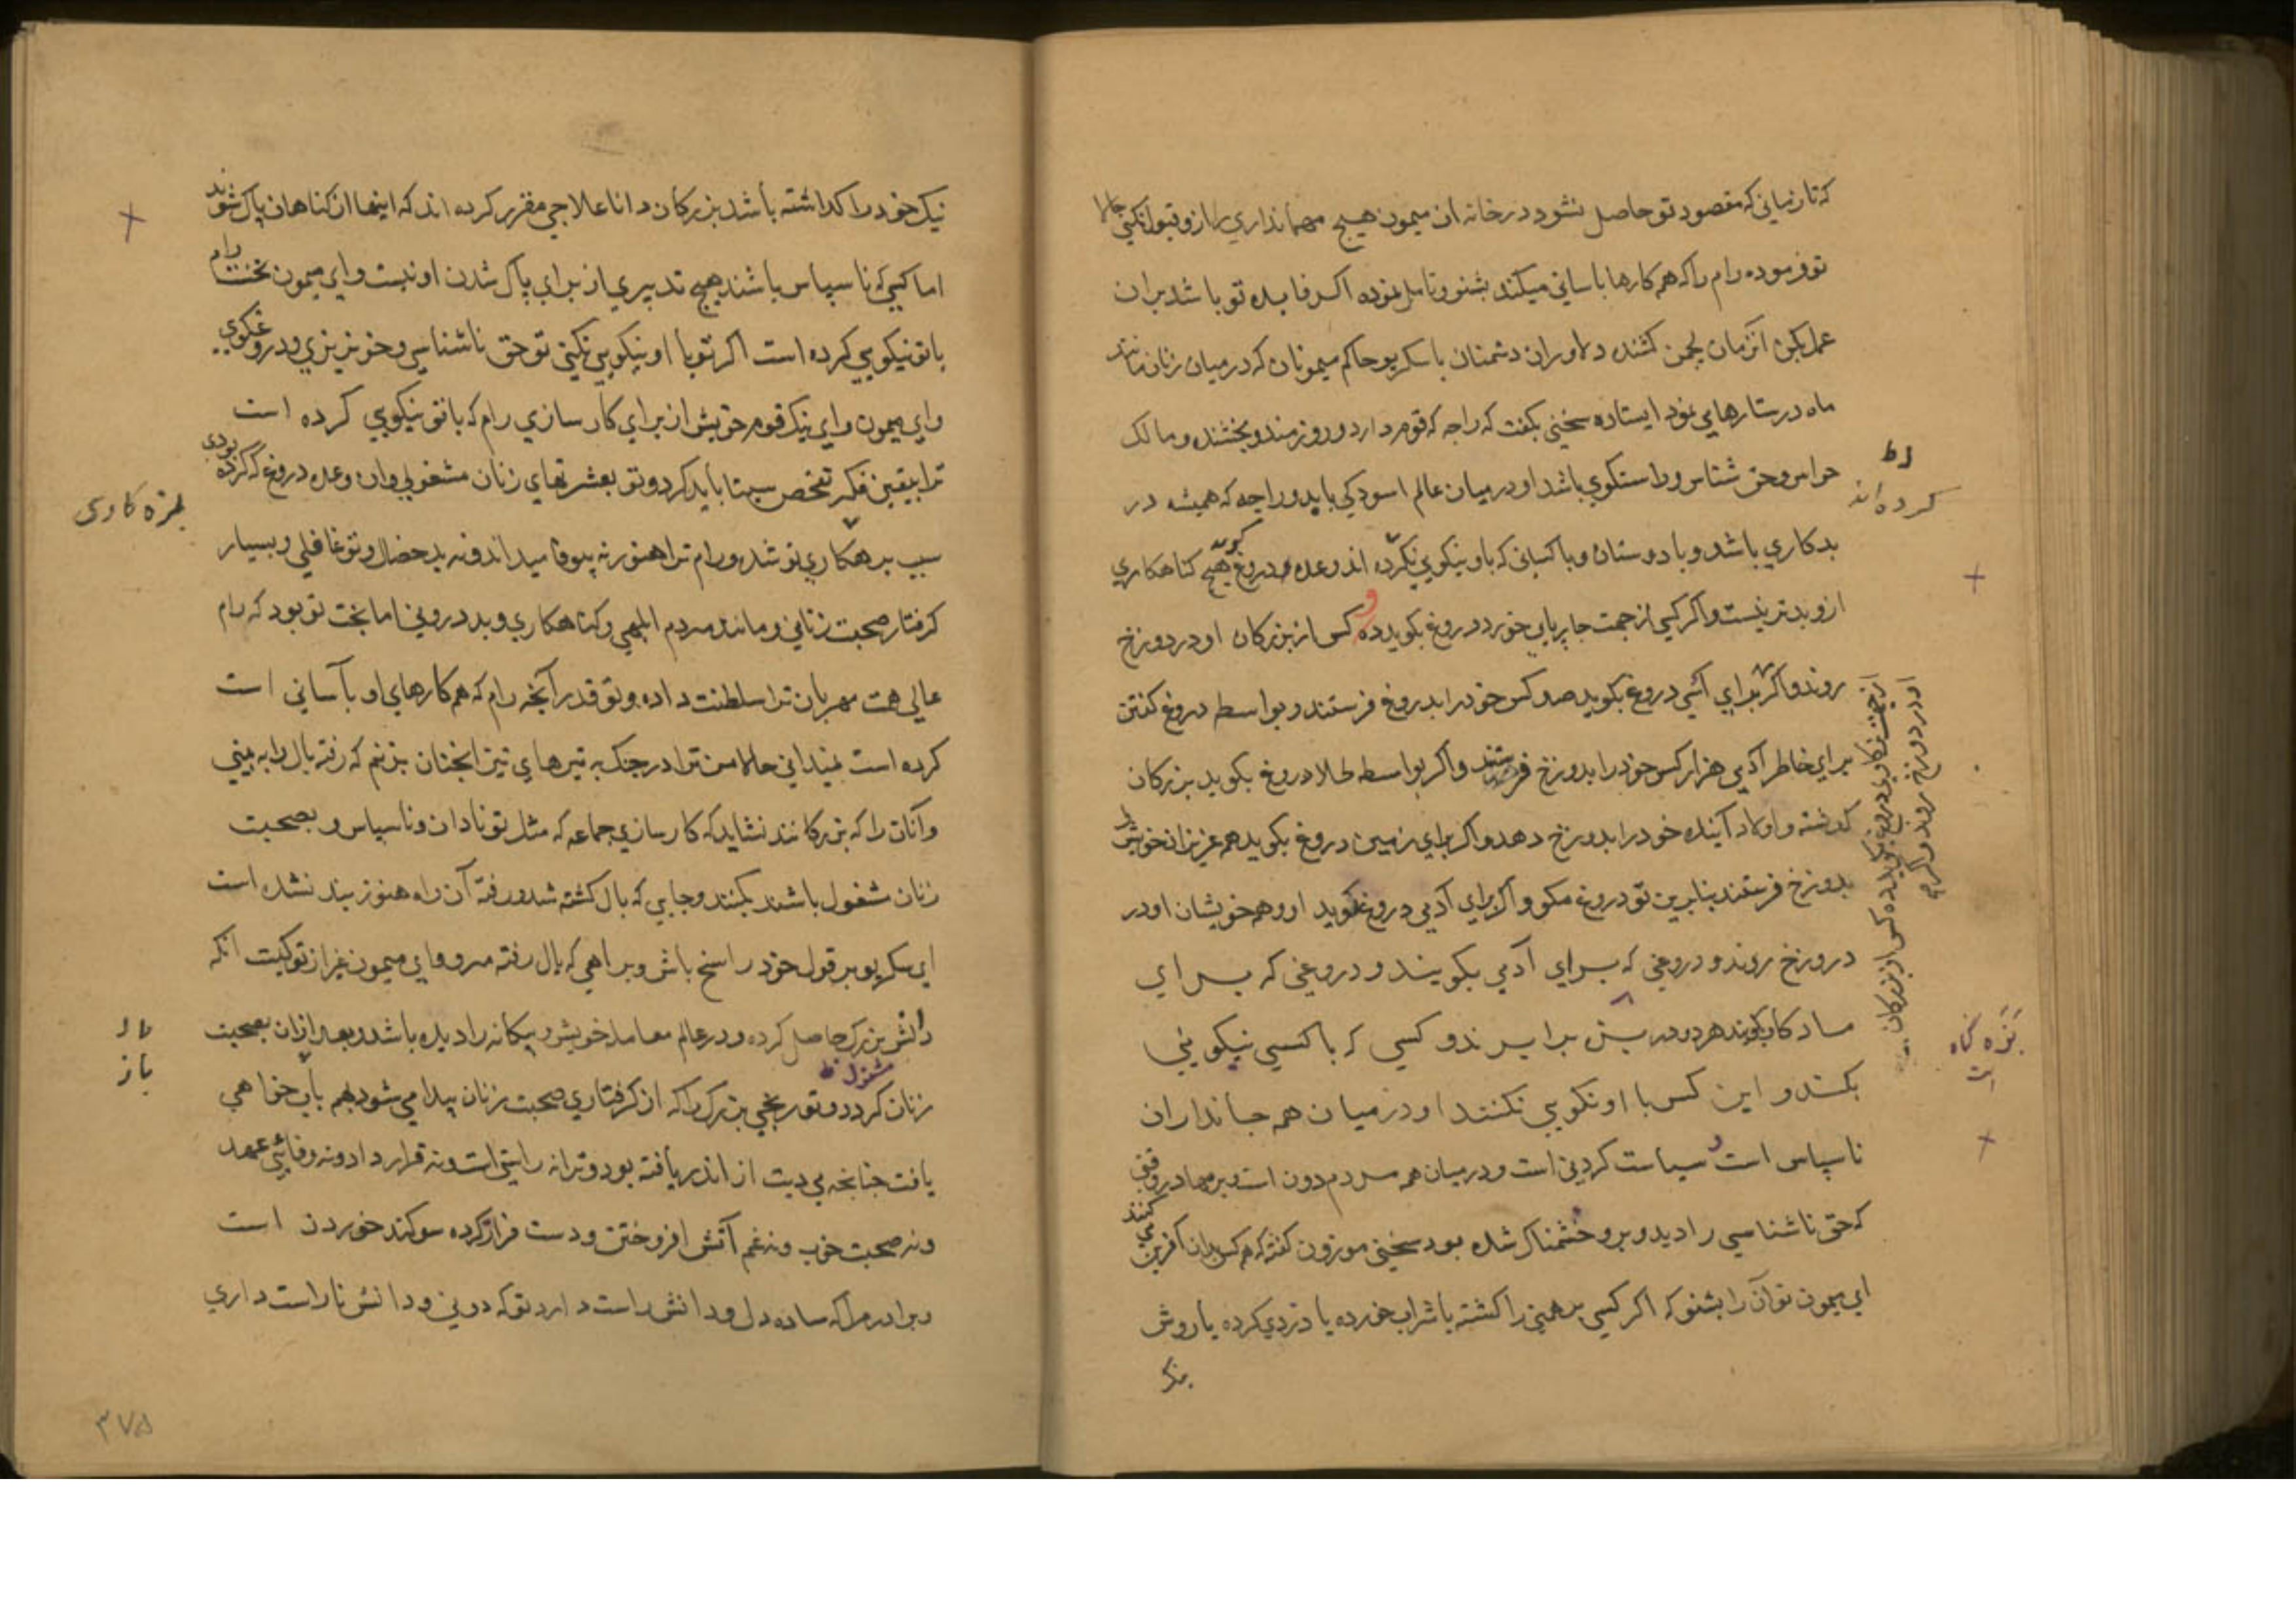 که تا زمانی که مقصود تو حاصل نشود در خانه ان میمون هیچ مهمانداري را ازو قبول نکني حالا
تو فرموده رام را که هم کارها باساني میکند بشنو و تامل نموده اکر فایده تو باشد بران
عمل بکن انزمان لچمن کشنده دلاوران دشمنان با سکریو حاکم میمونان که در میان زنان مانند
ماه در ستارهامي نمود ایستاده سخني بکفت که راجه که قوم دارد و روزمند و بخشنده و مالک
حواس و حق شناس و راستکوي باشد او در میان عالم اسودکي یابد و راجه که همیشه در
بدکاري باشد و با دوستان و با کساني که باو نیکوي نکرده اند وعده دروغ کوید هیچ کناهکاري
ازو بدتر نیست و اکر کسي از جهت چارپاي خورد دروغ بکوید ده کس از بزرکان او در دوزخ
روند و اکر براي اسپي دروغ بکوید صد کس خود را بدروغ فرستند و بواسطه دروغ کفتن
براي خاطر آدمي هزار کس خود را بدوزخ فرستند و اکر بواسطه طلا دروغ بکوید بزرکان
کذشته و اولاد آینده خود را بدوزخ دهد و اکر براي زمین دروغ بکوید همه عزیزان خویش را
بدوزخ فرستند بنابرین تو دروغ مکو و اکر براي آدمي دروغ بکوید او و هم خویشان او در
دروزخ روند و دروغي که براي آدمي بکویند و دروغي که براي
بکویند هر دو برابرند و کسي که با کسي نیکویي
بکند و این کس با او نکویي نکنند او در میان همه جانداران
ناسپاس است و سیاست کردني است و در میان همه مردم دون است و برمها در وقتي
که حق ناشناسي را دید و برو خشمناک شده بود سخني موزون کفته که هم کس بدان آفرین مي کنند
اي میمون تو آن را بشنو که اکر کسي برهمني را کشته یا شراب خورده یا دزدي کرده یا روش
نیک
کرده اند
از جهت کاوي دروغ بکوید ده کس از بزرکان
او در دوزخ روند و اکر
بزه کناه
است
نیک خود را کذاشته باشد بزرکان دانا علاجي مقرر کرده اند که اینها از کناهان پاک شوند
اما کسي که ناسپاس باشند هیچ تدبیري از براي پاک شدن او نیست و اي میمون نخست رام
با تو نیکویي کرده است اکر تو با او نیکویي نکني تو حق ناشناس و خونریزي و دروغکوي
و اي میمون و اي نیک قوم خویش از براي کارسازي رام که با تو نیکویي کرده است
ترا بیقین فکر تفحص سیتا باید کرد و تو بعشرتهاي زنان مشغولي و ان وعده دروغ که کرده بودي
سبب بزهکاري تو شد و رام ترا هنوز نه بیوفا میداند و نه بدخصال و تو غافلي و بسیار
کرفتار صحبت زناني و مانند مردم ابلهي و کناهکاري و بددروني اما بخت تو بود که رام
عالي همت مهربان ترا سلطنت داده و تو قدر آنچه رام که هم کارهاي او بآساني است
کرده است نمیداني حالا من ترا در جنک به تیرهاي تیز انچنان بزنم که رفته بال را به بیني
و آنان را که بزرکانند نشاید که کارسازي جماعه که مثل تو نادان و ناسپاس و بصحبت
زنان شغول باشند بکنند و جایي که بال کشته شد و رفته آن راه هنوز بند نشده است
اي سکریو بر قول خود راسخ باش و براهي که بال رفته مرو و اي میمون غیر از تو کیست انکه
دانش بزرک حاصل کرده و در عالم معامله خویش و بیکانه را دیده باشد و بعد ازان بصحبت
زنان کردد و تو رنجي بزرک را که از کرفتاري صحبت زنان پیدا مي شود هم باز خواهي
یافت چنانچه از اندر یافته بود و ترا نه راستي است و نه قرارداد و نه وفائي عهد
و نه صحبت خوب و نه غم آتش افروختن و دست فراز کرده سوکند خوردن است
و برادر مرا که ساده دل و دانش راست دارد تو که دوني و دانش ناراست داري
بزه کاري
مشغول
باز
۳۷۵